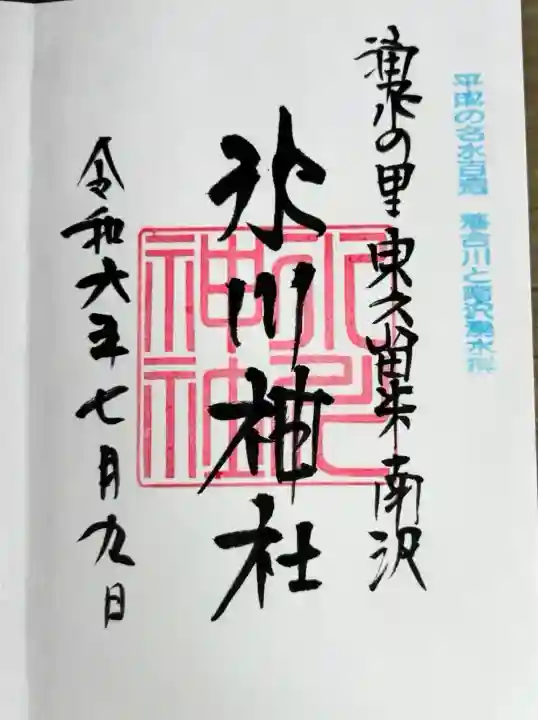 平成の名水百選 落合川と南沢湧水群
湧水の里 東久留米 南沢
氷川神社
令和六年七月九日